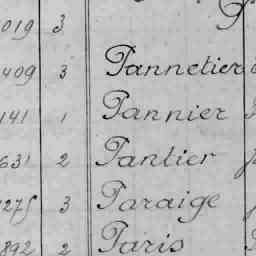 019 3
409 3 Pannetier
141 1 Pannier
631 2 Pantier
275 3 Paraige
892 2 Paris